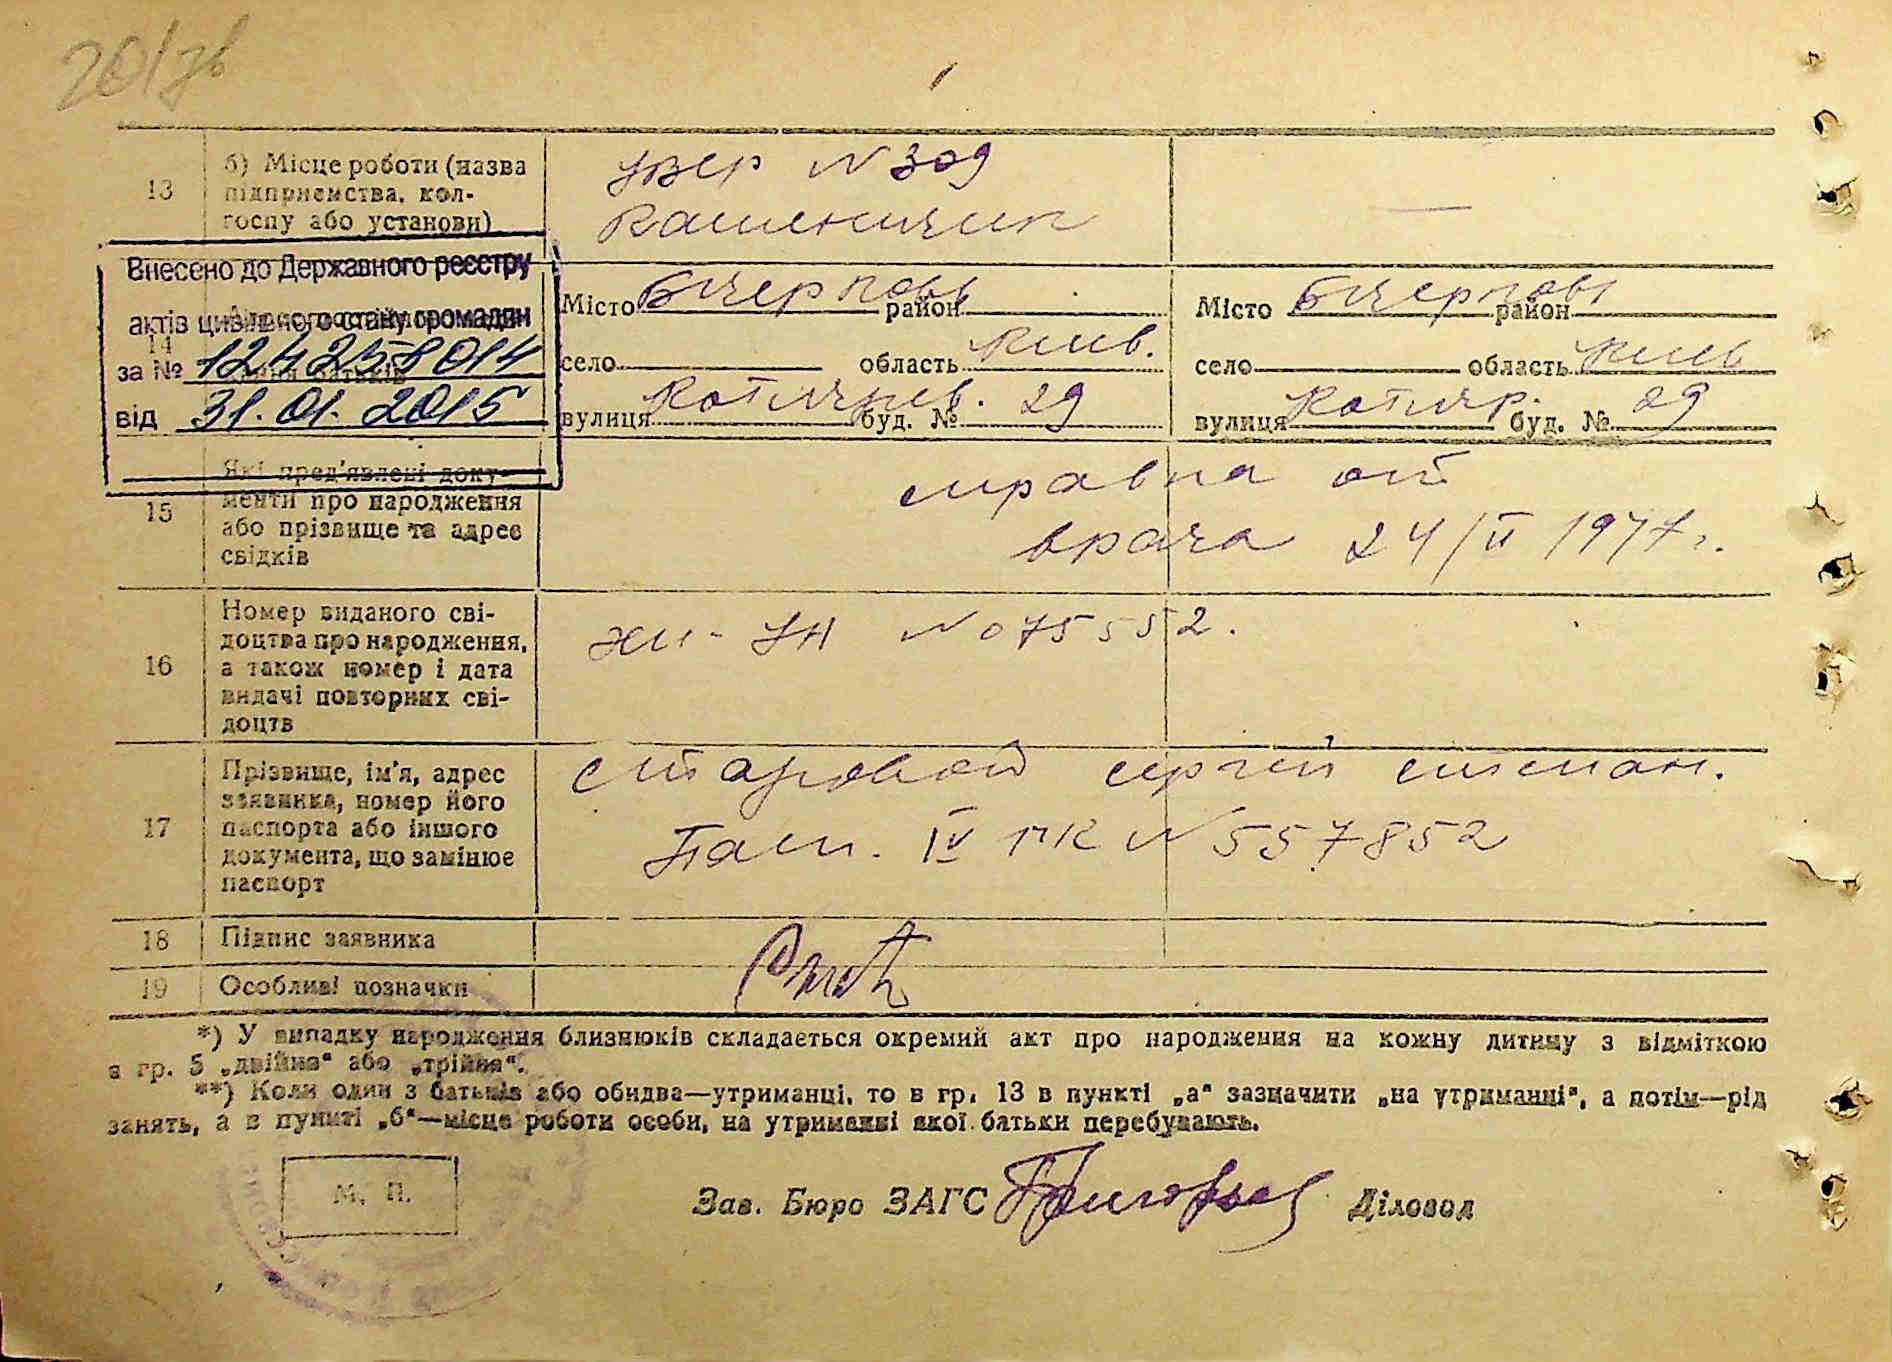 13
б) Місце роботи (назва
підприємства, кол-
госпу або установи)
№ 309
Каменщик
—
Внесено до Державного реєстру
актів цивільного стану громадян
за № 124258014
від 31.01.2015
14
Місто Б Церковь район
село область Киев.
вулиця Котляревс. буд. № 29
Місто Б Церковь район
село область Киев
вулиця Котляр. буд. № 29
15
Які пред'явлені доку-
менти про народження
або прізвище та адрес
свідків
справка от
врача 24/II 1977 г.
16
Номер виданого сві-
доцтва про народження,
а також номер і дата
видачі повторних сві-
доцтв
№ 075552.
17
Прізвище, ім'я, адрес
заявника, номер його
паспорта або іншого
документа, що замінює
паспорт
Старовой Сергей Степан.
Пасп. IV МК № 557852
18
Підпис заявника
19
Особливі позначки
*) У випадку народження близнюків складається окремий акт про народження на кожну дитину з відміткою
в гр. 5 „двійня“ або „трійня“.
**) Коли один з батьків або обидва—утриманці, то в гр. 13 в пункті „а“ зазначити „на утриманні“, а потім—рід
занять, а в пункті „б“—місце роботи особи, на утриманні якої батьки перебувають.
М. П.
Зав. Бюро ЗАГС Діловод